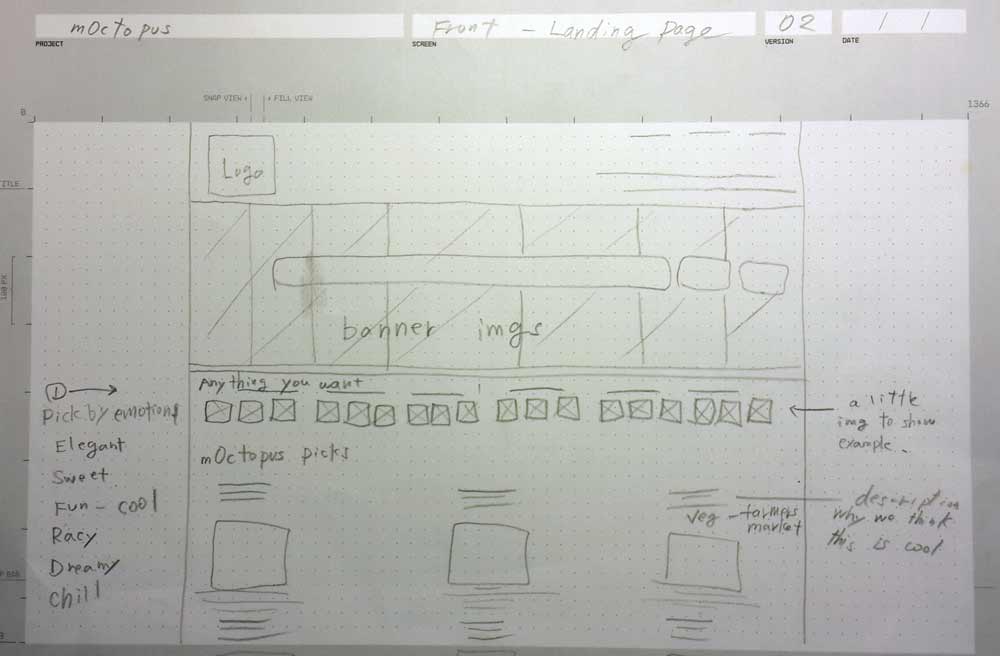 mOctopus
PROJECT
Front - Landing page
SCREEN
02
VERSION
/ /
DATE
SNAP VIEW
FILL VIEW
0
1366
Logo
TITLE
100 PX
banner imgs
Anything you want
1
pick by emotions
Elegant
Sweet
Fun - cool
Racy
Dreamy
chill
a little
img to show
example..
mOctopus picks
veg - farmers
market
description
why we think
this is cool